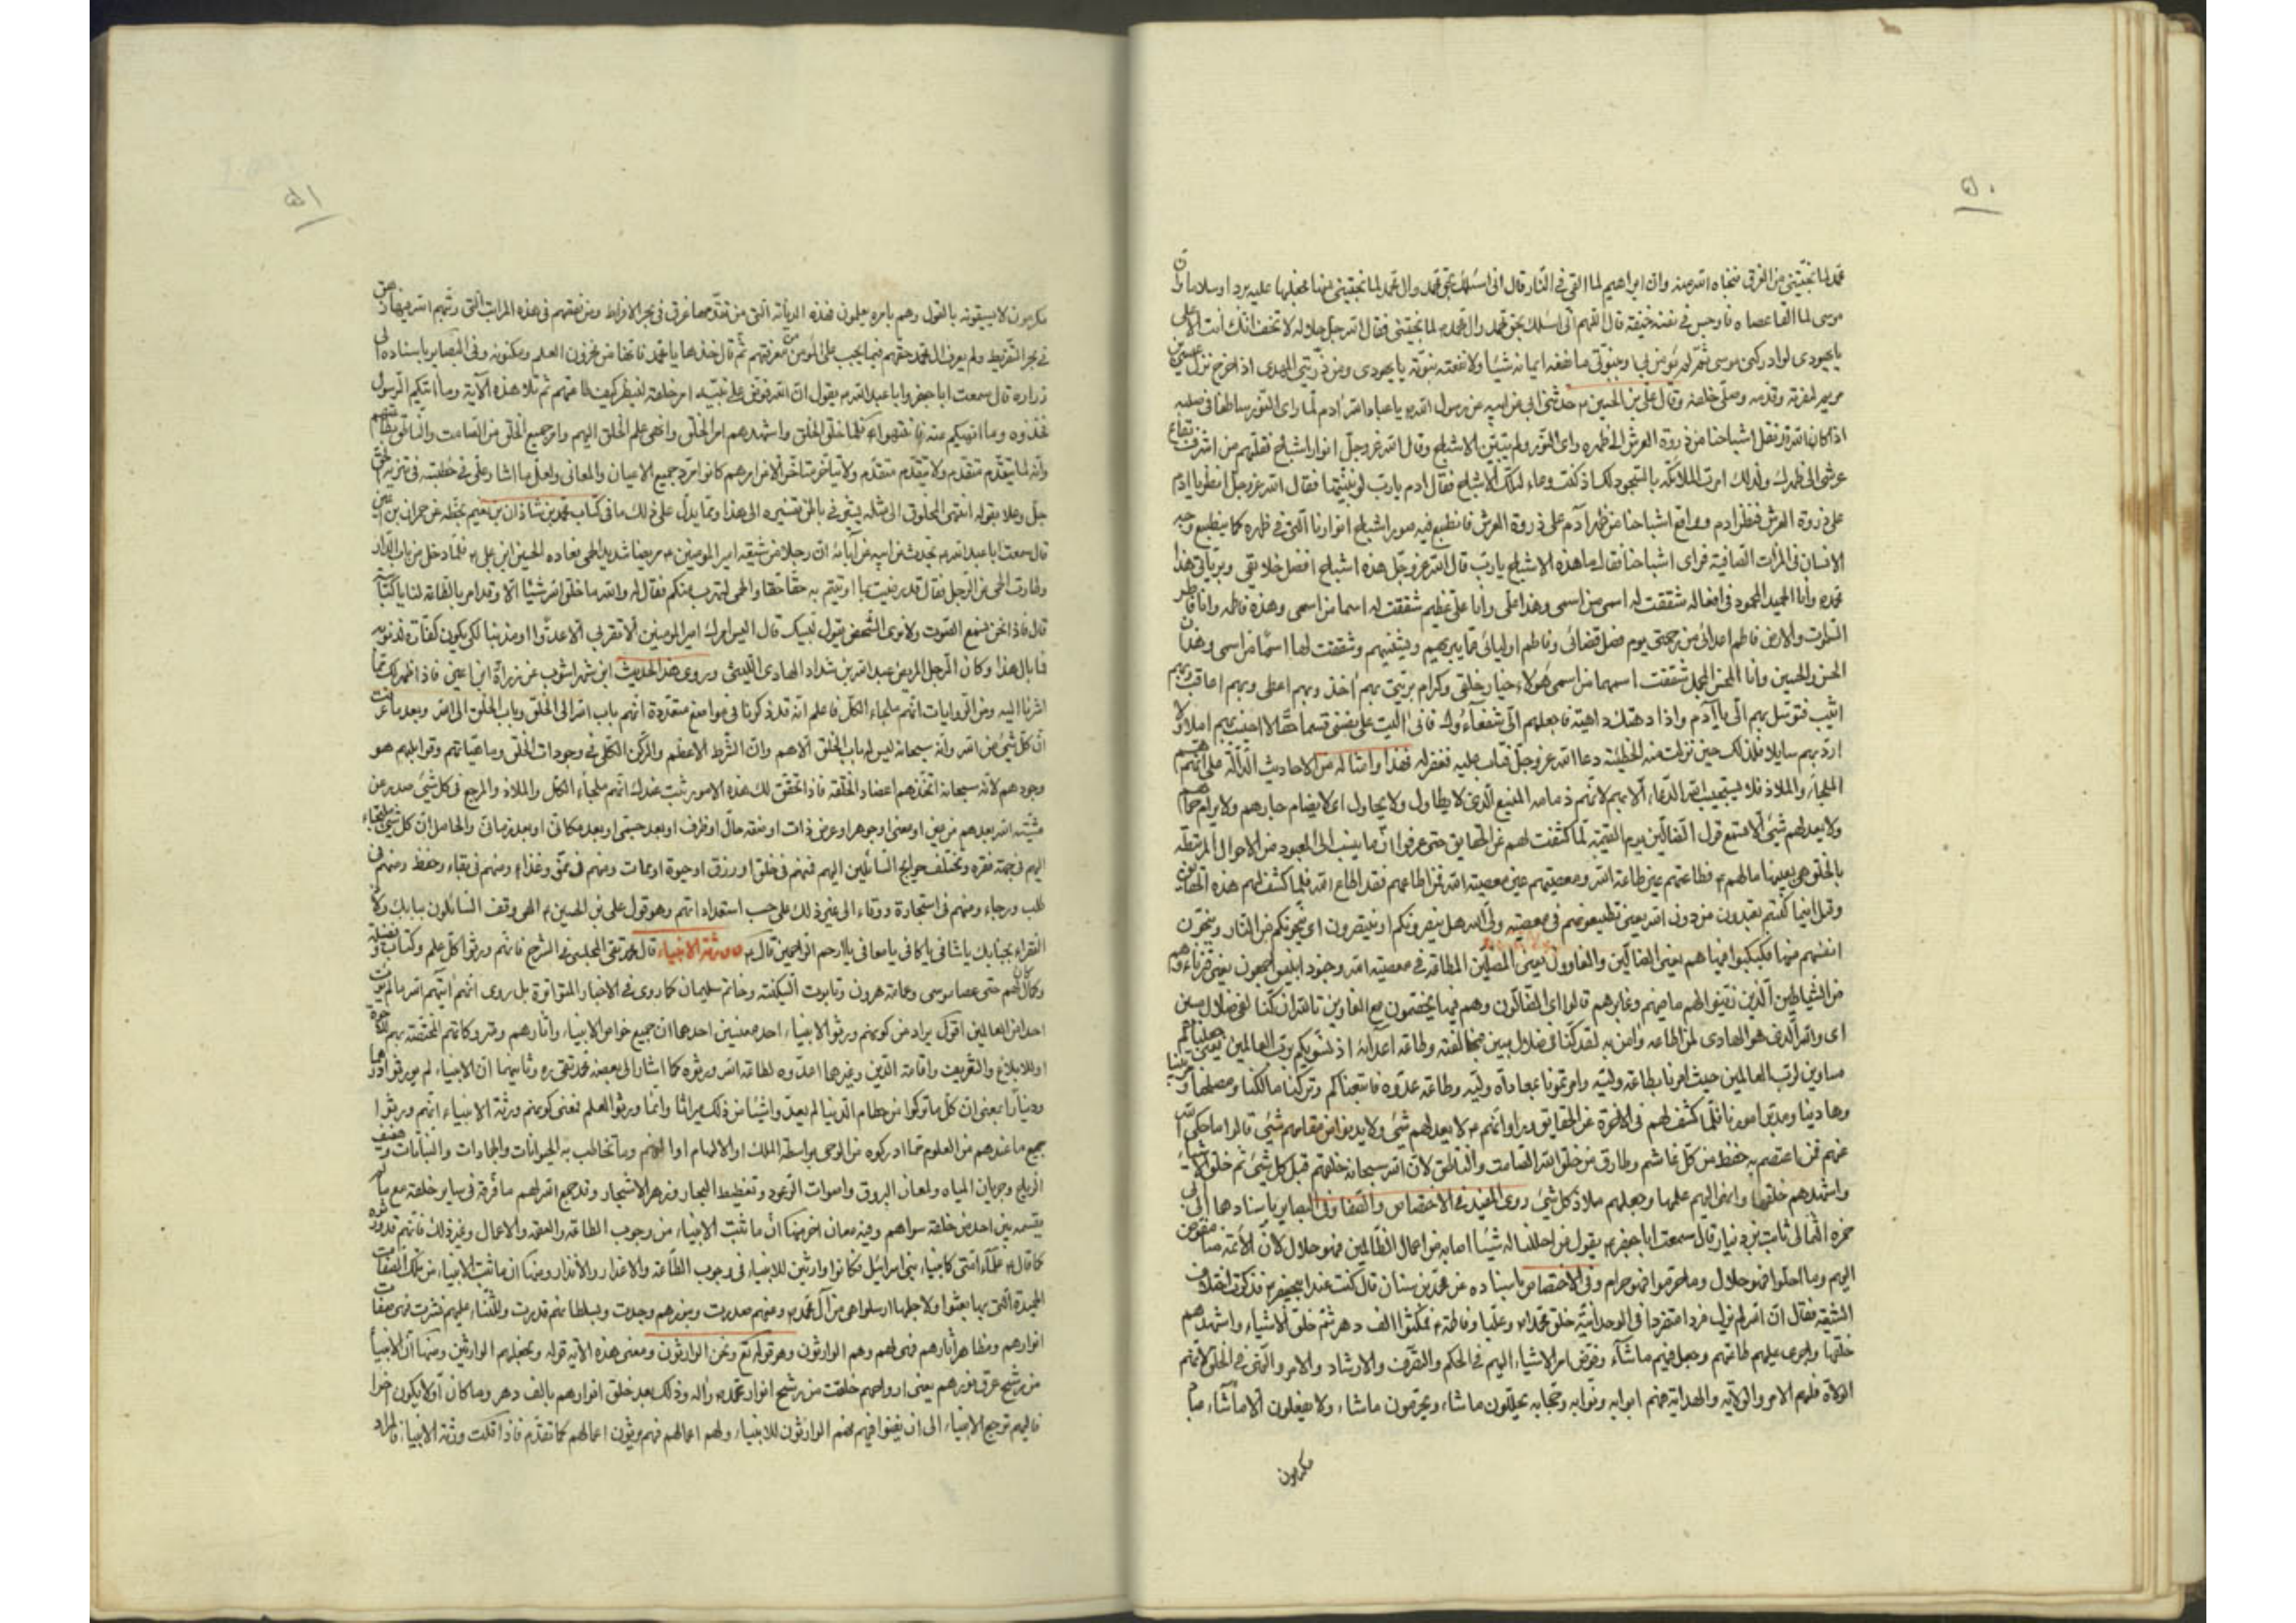 ٥٠
محمد لما نجيتني من الغرق فنجاه الله منه وان ابراهيم لما القي في النار قال اني اسئلك بحق محمد وال محمد لما نجيتني منها فجعلها عليه بردا وسلاما وان
موسى لما القا عصاه فاوجس في نفسه خيفة قال اللهم اني اسئلك بحق محمد وال محمد لما نجيتني فقال الله جل جلاله لا تخف انك انت الاعلى
يا يهودي لو ادركني موسى ثم لم يؤمن بي وبنبوتي ما نفعه ايمانه شيئا ولا نفعته نبوته يا يهودي ومن ذريتي المهدي اذا خرج نزل عيسى بن
مريم لنصرته وقدمه وصلى خلفه وقال علي بن الحسين حدثني ابي عن ابيه عن رسول الله يا عباد الله ان ادم لما راى النور ساطعا من صلبه
اذ كان الله قد نقل اشباحنا من ذروة العرش الى ظهره راى النور ولم يتبين الاشباح وقال الله عز وجل انوار اشباح نقلتهم من اشرف بقاع
عرشي الى ظهرك ولذلك امرت الملائكة بالسجود لك اذ كنت وعاء لتلك الاشباح فقال ادم يا رب لو بينتها فقال الله عز وجل انظر يا ادم
على ذروة العرش فنظر ادم وواقع اشباحنا من ظهر آدم على ذروة العرش فانطبع فيه صور اشباح انوارنا التي في ظهره كما ينطبع وجه
الانسان في المرات الصافية فراى اشباحنا فقال ما هذه الاشباح يا رب قال الله عز وجل هذه اشباح افضل خلائقي وبرياتي هذا
محمد وانا الحميد المحمود في افعاله شققت له اسمى من اسمي وهذا علي وانا علي عظيم شققت له اسما من اسمي وهذه فاطمه وانا فاطر
السموات والارض فاطم اعدائي من رحمتي يوم فصل قضائي وفاطم اوليائي عما يبيرهم ويشينهم وشققت لها اسما من اسمي وهذان
الحسن والحسين وانا المحسن المجمل شققت اسمهما من اسمي هؤلاء خيار خلقي وكرام بريتي بهم اخذ وبهم اعطي وبهم اعاقب وبهم
اثيب فتوسل بهم الي يا آدم واذا دهتك داهية فاجعلهم الي شفعاءك فاني اليت على نفسي قسما حقا لا اخيب بهم املا ولا
ارد بهم سايلا فلذلك حين نزلت منه الخطيئة دعا الله عز وجل فتاب عليه فغفر له فهذا وامثاله من الاحاديث الدالة على انهم
الملجاء والملاذ فلا يستجيب الله الدعاء الا بهم لانهم ذمامه المنيع الذي لا يطاول ولا يحاول اي لا يضام جارهم ولا يرام حماهم
ولا يعدلهم شيئ الا متع قول الضالين يوم القيمة لما كشفت لهم عن الحقايق حتى عرفوا ان ما ينسب الى المعبود من الاحوال المرتبطة
بالخلق هي بعينها ما لهم فطاعتهم عين طاعة الله ومعصيتهم عين معصية الله فمن اطاعهم فقد اطاع الله فلما كشف لهم هذه الحقايق
وقيل اينما كنتم تعبدون من دون الله يعني تطيعونهم في معصية ولي الله هل ينصرونكم او ينتصرون اي ينجونكم من النار وينجون
انفسهم منها فكبكبوا فيها هم يعني الضالين والغاوون يعني المضلين المطاعة في معصية الله وجنود ابليس اجمعون يعني قرناءهم
من الشياطين الذين زينوا لهم ما بينهم وغايرهم قالوا اي الضالون وهم فيها يختصمون مع الغاوين تالله ان كنا لفي ضلال مبين
اي والله الذي هو الهادي لمن اطاعه وامن به لقد كنا في ضلال مبين بمخالفته وطاعة اعدائه اذ نسويكم برب العالمين يعني جعلناكم
مساوين لرب العالمين حيث امرنا بطاعة وليه وامرتمونا بمعاداة وليه وطاعة عدوه فاتبعناكم وتركنا مالكنا ومصلحنا ومربينا
وهادينا ومدبر امورنا فلما كشف لهم في الاخرة عن الحقايق وراوا انهم لا يعدلهم شيئ ولا يدنو من مقامهم شيئ قالوا ما حكى الله
عنهم فمن اعتصم به حفظ من كل غاشم وطارق من خلق الله الصامت والناطق لان الله سبحانه خلقهم قبل كل شيئ ثم خلق الاشياء
واشهدهم خلقها وانهى اليهم علمها وجعلهم ملاذ كل شيئ روى المفيد في الاختصاص والصفا وفي البصاير باسنادها الى ابي
حمزه الثمالي ثابت بن دنيار قال سمعت ابا جعفر يقول من احللنا له شيئا اصابه من اعمال الظالمين فهو حلال لان الائمة منا مفوض
اليهم وما احلوا فهو حلال وما حرموا فهو حرام وفي الاختصاص باسناده عن محمد بن سنان قال كنت عند ابيجعفر فذكرت اختلاف
الشيعة فقال ان الله لم يزل فردا متفردا في الوحدانية ثم خلق محمدا وعليا وفاطمة فمكثوا الف دهر ثم خلق الاشياء واشهدهم
خلقها واجرى عليهم طاعتهم وجعل فيهم ما شآء وفوض امر الاشياء اليهم في الحكم والتصرف والارشاد والامر والنهي في الخلق لانهم
الولاة فلهم الامر والولاية والهداية فهم ابوابه ونوابه وحجابه يحللون ما شاء ويحرمون ما شاء ولا يفعلون الا ما شاء عباد
مكرمون
٥١
مكرمون لا يسبقونه بالقول وهم بامره يعملون فهذه الديانة التي من تقدمها غرق في بحر الافراط ومن نقصهم في هذه المراتب التي رتبهم الله فيها زهق
في بحر التفريط ولم يعرف ال محمد حقهم فيما يجب على المؤمن من معرفتهم ثم قال خذها يا محمد فانها من مخزون العلم ومكنونه وفي البصاير باسناده الى
زراره قال سمعت ابا جعفر وابا عبد الله يقول ان الله فوض على نبيه امر خلقه لينظر كيف طاعتهم ثم تلا هذه الآية وما اتيكم الرسول
فخذوه وما انهيكم عنه فانتهوا فلما خلق الخلق واشهدهم امر الخلق وانهى علم الخلق اليهم وامر جميع الخلق من الصامت والناطق بطاعتهم
وانه لما يتقدم متقدم ولا يتقدم متقدم ولا يتاخر متاخر الا من امرهم كانوا مرد جميع الاعيان والمعاني ولعل ما اشار علي في خطبته في تنزيه الحق
جل وعلا بقوله انتهى المخلوق الى مثله يشعر في باطن تفسيره الى هذا ومما يدل على ذلك ما في كتاب محمد بن شاذان بن نعيم بخطه عن حمران بن اعين
قال سمعت ابا عبد الله يحدث عن ابيه عن آبائه ان رجلا من شيعة امير المومنين مريضا شديد الحمى فعاده الحسين ابن علي فلما دخل من باب الدار
وطارت الحمى عن الرجل فقال قد رضيت بما اوتيتم به حقا حقا والحمى لتهرب منكم فقال له والله ما خلق الله شيئا الا وقد امر بالطاعة لنا يا كناسة
قال فاذا نحن نسمع الصوت ولا نرى الشخص يقول لبيك قال اليس امرك امير المومنين الا تقربي الا عدوا او مذنبا لكي يكون كفارة لذنوبه
فما بال هذا وكان الرجل المريض عبد الله بن شداد الهادي الليثي وروى هذا الحديث ابن شهر اشوب عن زرارة ابن اعين فاذا ظهر لك مما
اشرنا اليه ومن الروايات انهم ملجاء الكل فاعلم انه قد ذكرنا في مواضع متعددة انهم باب الله الى الخلق وباب الخلق الى الله وبعد ما عرفت
ان كل شيئ من الله وانه سبحانه ليس له باب الخلق الا هم وان الشرط الاعظم والركن الكلي في وجودات الخلق وماهياتهم وقوابلهم هو
وجودهم لانه سبحانه اتخذهم اعضاد الخلقة فاذا تحقق لك هذه الامور ثبت عندك انهم ملجاء الكل والملاذ والمرجع في كل شيئ صدر عن
مشيته الله بعدهم من عين او معنى او جوهر او عرض ذات او صفة حال او ظرف او بعد جسمي او بعد مكاني او بعد زماني والحاصل ان كل شيئ ملتجاء
اليهم في جهة فقره وتختلف حوايج السائلين اليهم فمنهم في خلق او رزق او حيوة او ممات ومنهم في نمو وغذاء ومنهم في بقاء وحفظ ومنهم في
طلب ورجاء ومنهم في استجارة ووقاء الى غير ذلك على حسب استعداداتهم وهو قول علي بن الحسين الهي وقف السائلون ببابك ولاذ
الفقراء بجنابك يا شافي يا كافي يا معافي يا ارحم الراحمين قال وورثة الانبياء قال محمد تقي المجلسي في الشرح فانهم ورثوا كل علم وكتاب وفضيلة
وكمال كان لهم حتى عصا موسى وعمامة هرون وتابوت السكينة وخاتم سليمان كما روى في الاخبار المتواترة بل روى انهم اتيهم الله ما لم يؤت
احدا من العالمين اقول يراد من كونهم ورثوا الانبياء احد معنيين احدهما ان جميع خواص الانبياء واثارهم ومتروكاتهم المختصة بهم للآخرة
او للابلاغ والتعريف واقامة الدين وغيرها اعدوه لطاعة الله ورثوه كما اشار الى بعضه محمد تقي ره وثانيهما ان الانبياء لم يورثوا درهما
ودينارا بمعنى ان كل ما تركوا من حطام الدنيا لم يعدوا شيئا من ذلك ميراثا وانما ورثوا العلم فمعنى كونهم ورثة الانبياء انهم ورثوا
جميع ما عندهم من العلوم مما ادركوه من الوحي بواسطة الملك او الالهام او الفهم وما تخاطب به الحيوانات والجمادات والنباتات وهفيف
الرياح وجريان المياه ولمعان البروق واصوات الرعود وتغطيط البحار وزهر الاشجار وقد جمع الله لهم ما فرقه في ساير خلقه مع ما لم
يقسمه بين احد من خلقه سواهم وفيه معان اخر منها ان ما ثبت الانبياء من وجوب الطاعة والعصمة والاعمال وغير ذلك فانهم قد ورثوه
كما قال علماء امتي كانبياء بني اسرائيل فكانوا وارثين للانبياء في وجوب الطاعة والاعذار والانذار ومنها ان ما ثبت الانبياء من تلك الصفات
الحميدة التي بها بعثوا ولاجلها ارسلوا هي من آل محمد وعنهم صدرت وبنورهم وجدت وبسلطانهم قدرت وللثناء عليهم نشرت فهي صفات
انوارهم ومظاهر آثارهم فهي لهم وهم الوارثون وهو قوله تع ونحن الوارثون ومعنى هذه الاية قوله ونجعلهم الوارثين ومنها ان الانبيا
من رشح عرق نورهم يعني ارواحهم خلقت من رشح انوار محمد واله وذلك بعد خلق انوارهم بالف دهر وما كان اولا يكون اخرا
فاليهم ترجع الانبياء الى ان يفنوا فيهم فهم الوارثون للانبياء ولهم اعمالهم فهم يرثون اعمالهم كما تقدم فاذا قلت ورثة الانبياء فالمراد